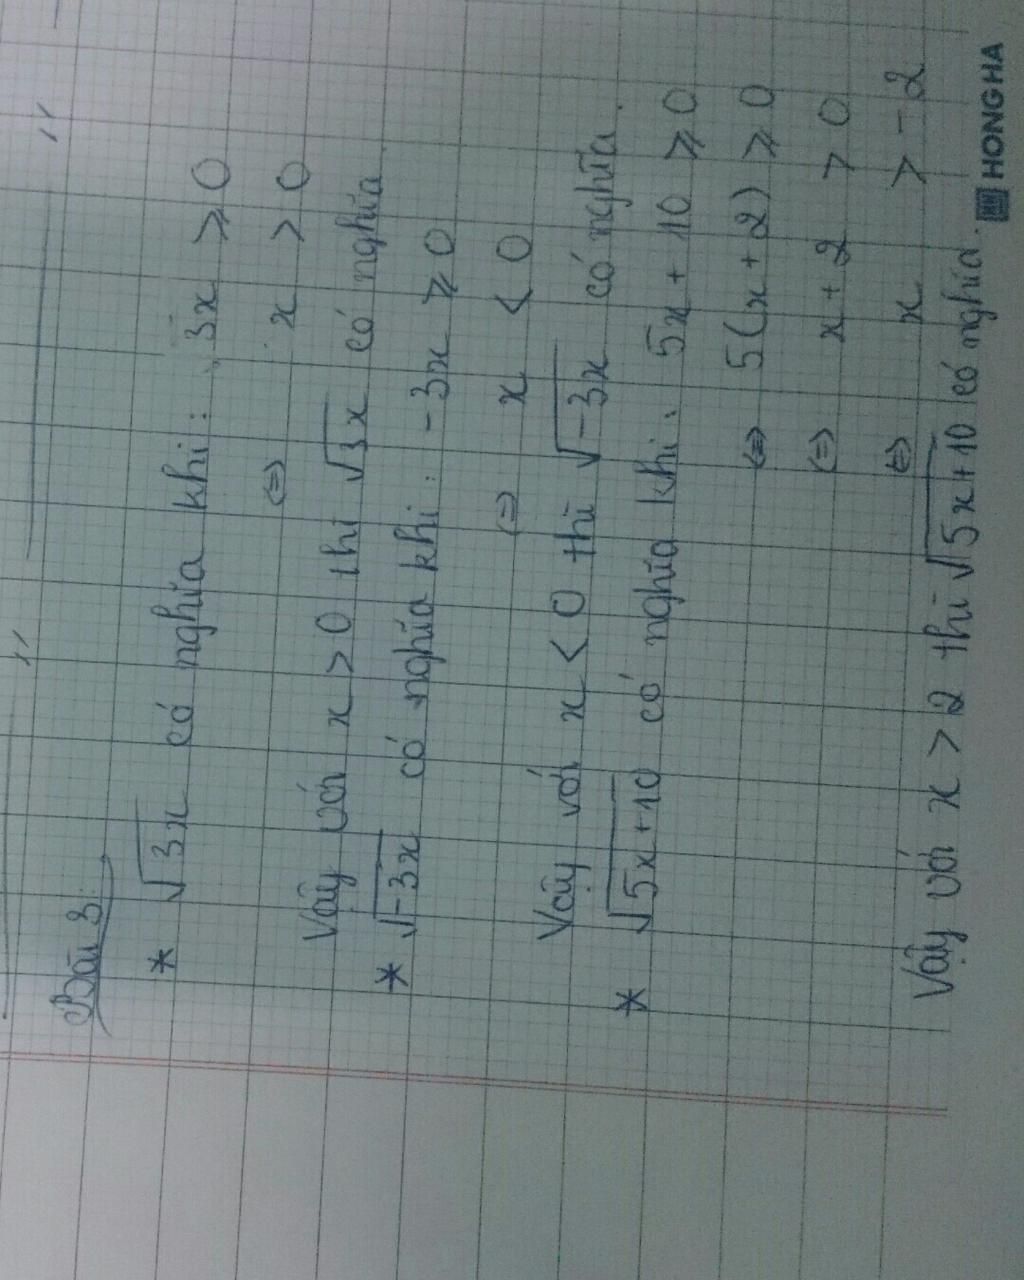 Bài 3:
* √3x có nghĩa khi: 3x ⩾ 0
⇔ x > 0
Vậy với x > 0 thì √3x có nghĩa
* √-3x có nghĩa khi: -3x ⩾ 0
⇔ x < 0
Vậy với x < 0 thì √-3x có nghĩa.
* √5x+10 có nghĩa khi: 5x + 10 ⩾ 0
⇔ 5(x+2) ⩾ 0
⇔ x+2 > 0
⇔ x > -2
Vậy với x > 2 thì √5x+10 có nghĩa.
HONG HA